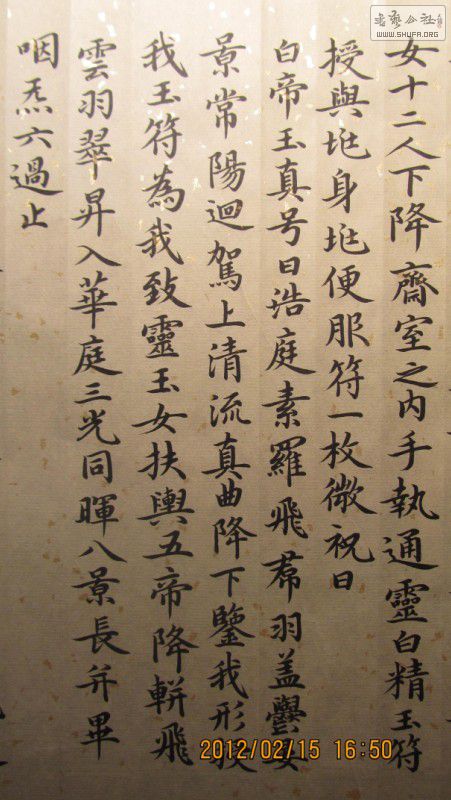 女十二人下降齋室之內手執通靈白精玉符
授與垗身垗便服符一枚微祝曰
白帝玉真号曰浩庭素羅飛帬羽盖
景常陽迴駕上清流真曲降下鑒我形授
我玉符為我致靈玉女扶輿五帝降軿飛
雲羽翠昇入華庭三光同暉八景長并畢
咽炁六過止
書藝公社
WWW.SHUFA.ORG
2012/02/15 16:50